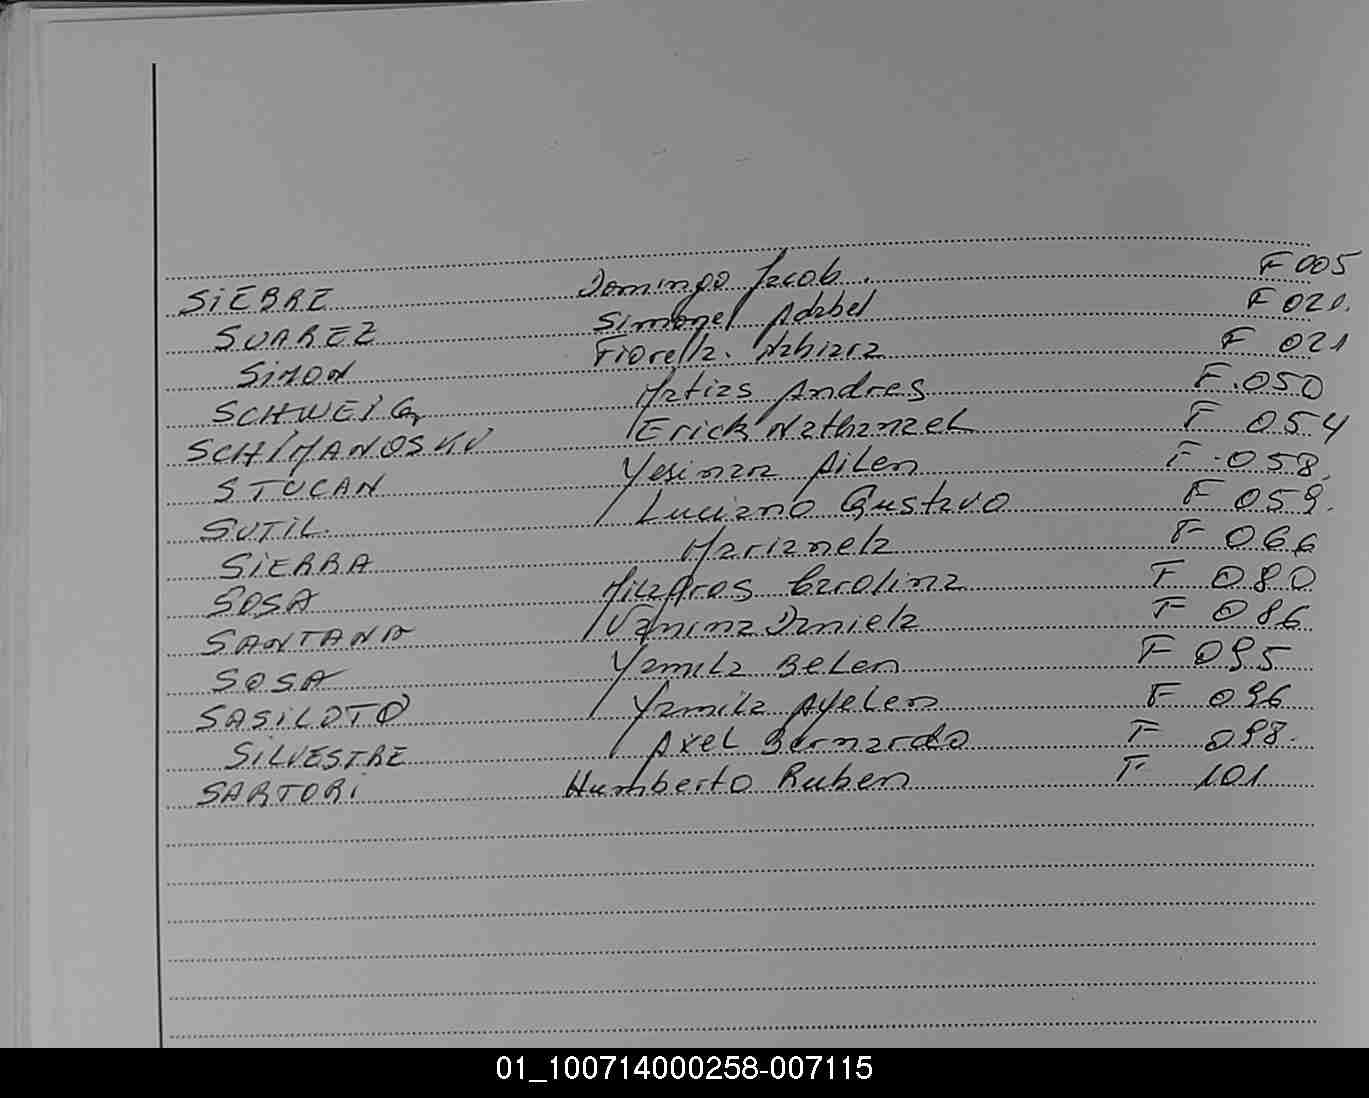 SIEBRE Domingo Jacob. F 005
SUAREZ Simonel Adabel F 020.
SIMON Fiorella. Nahiara F 021
SCHWEIG Matias Andres F. 050
SCHIMANOSKU Erick Nathanael F 054
STUCAN Yesinara Ailen F. 058
SUTIL. Luciano Gustavo F 059.
SIERRA Marianela F 066
SOSA Milagros Carolina F 080
SANTANA Vanina Daniela F 086
SOSA Yamila Belen F 095
SASILOTO Yamila Ayelen F 096
SILVESTRE Axel Bernardo F 098.
SARTORI Humberto Ruben F 101
01_100714000258-007115